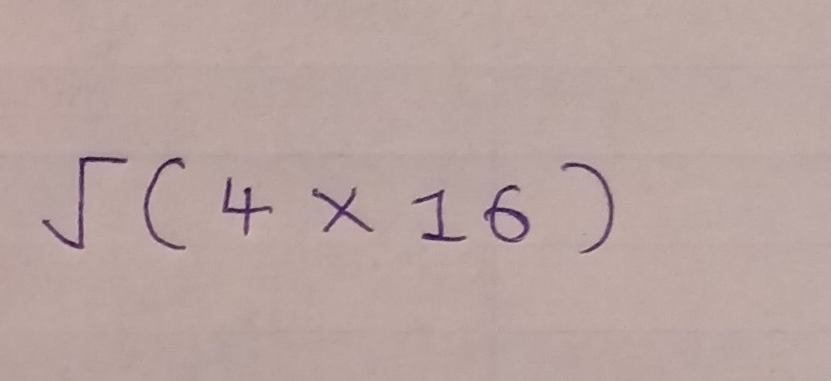 √(4 × 16)